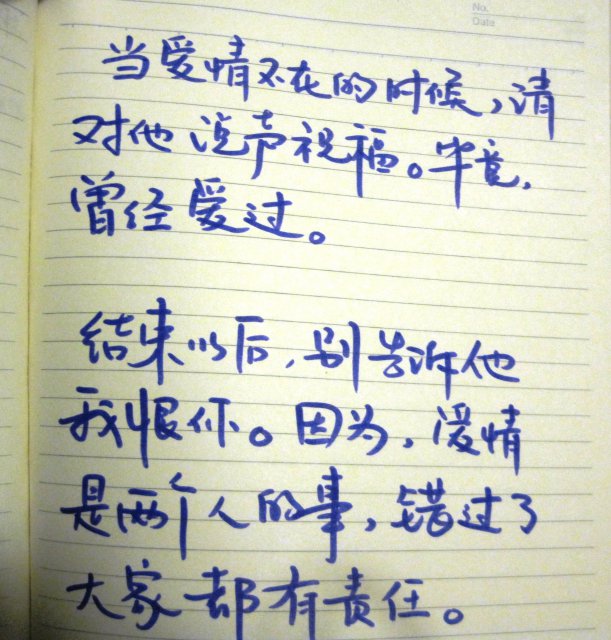 No.
Date
当爱情不在的时候，请
对他说声祝福。毕竟，
曾经爱过。
结束以后，别告诉他
我恨你。因为，爱情
是两个人的事，错过了
大家都有责任。